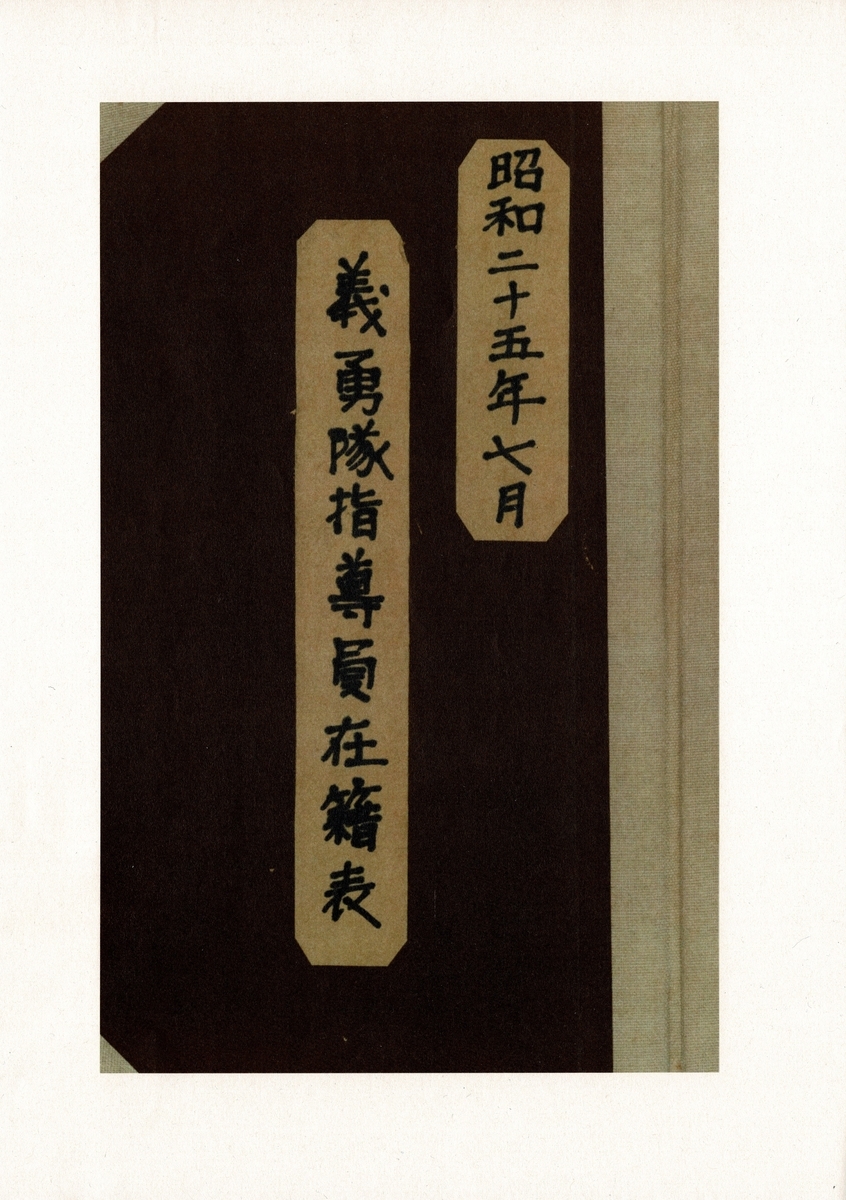 昭和二十五年七月
義勇隊指導員在籍表